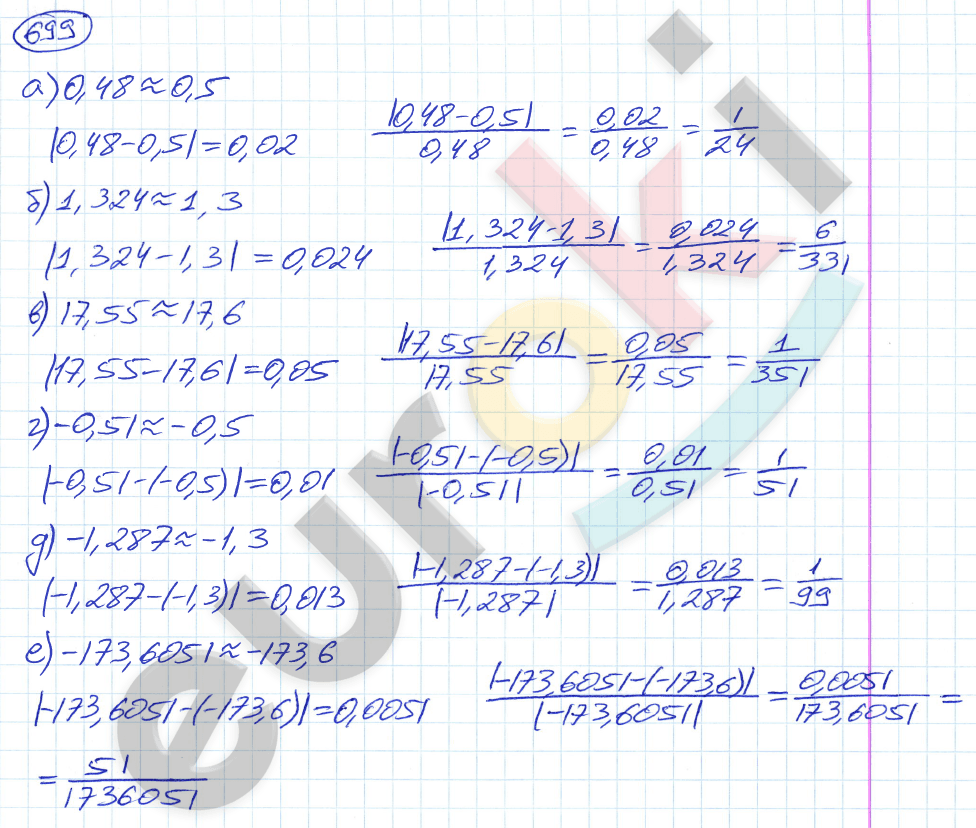 699
а) 0,48 ≈ 0,5
|0,48-0,5| = 0,02    |0,48-0,5|/0,48 = 0,02/0,48 = 1/24
б) 1,324 ≈ 1,3
|1,324-1,3| = 0,024    |1,324-1,3|/1,324 = 0,024/1,324 = 6/331
в) 17,55 ≈ 17,6
|17,55-17,6| = 0,05    |17,55-17,6|/17,55 = 0,05/17,55 = 1/351
г) -0,51 ≈ -0,5
|-0,51-(-0,5)| = 0,01    |-0,51-(-0,5)|/|-0,51| = 0,01/0,51 = 1/51
д) -1,287 ≈ -1,3
|-1,287-(-1,3)| = 0,013    |-1,287-(-1,3)|/|-1,287| = 0,013/1,287 = 1/99
е) -173,6051 ≈ -173,6
|-173,6051-(-173,6)| = 0,0051    |-173,6051-(-173,6)|/|-173,6051| = 0,0051/173,6051 =
= 51/1736051
euroki